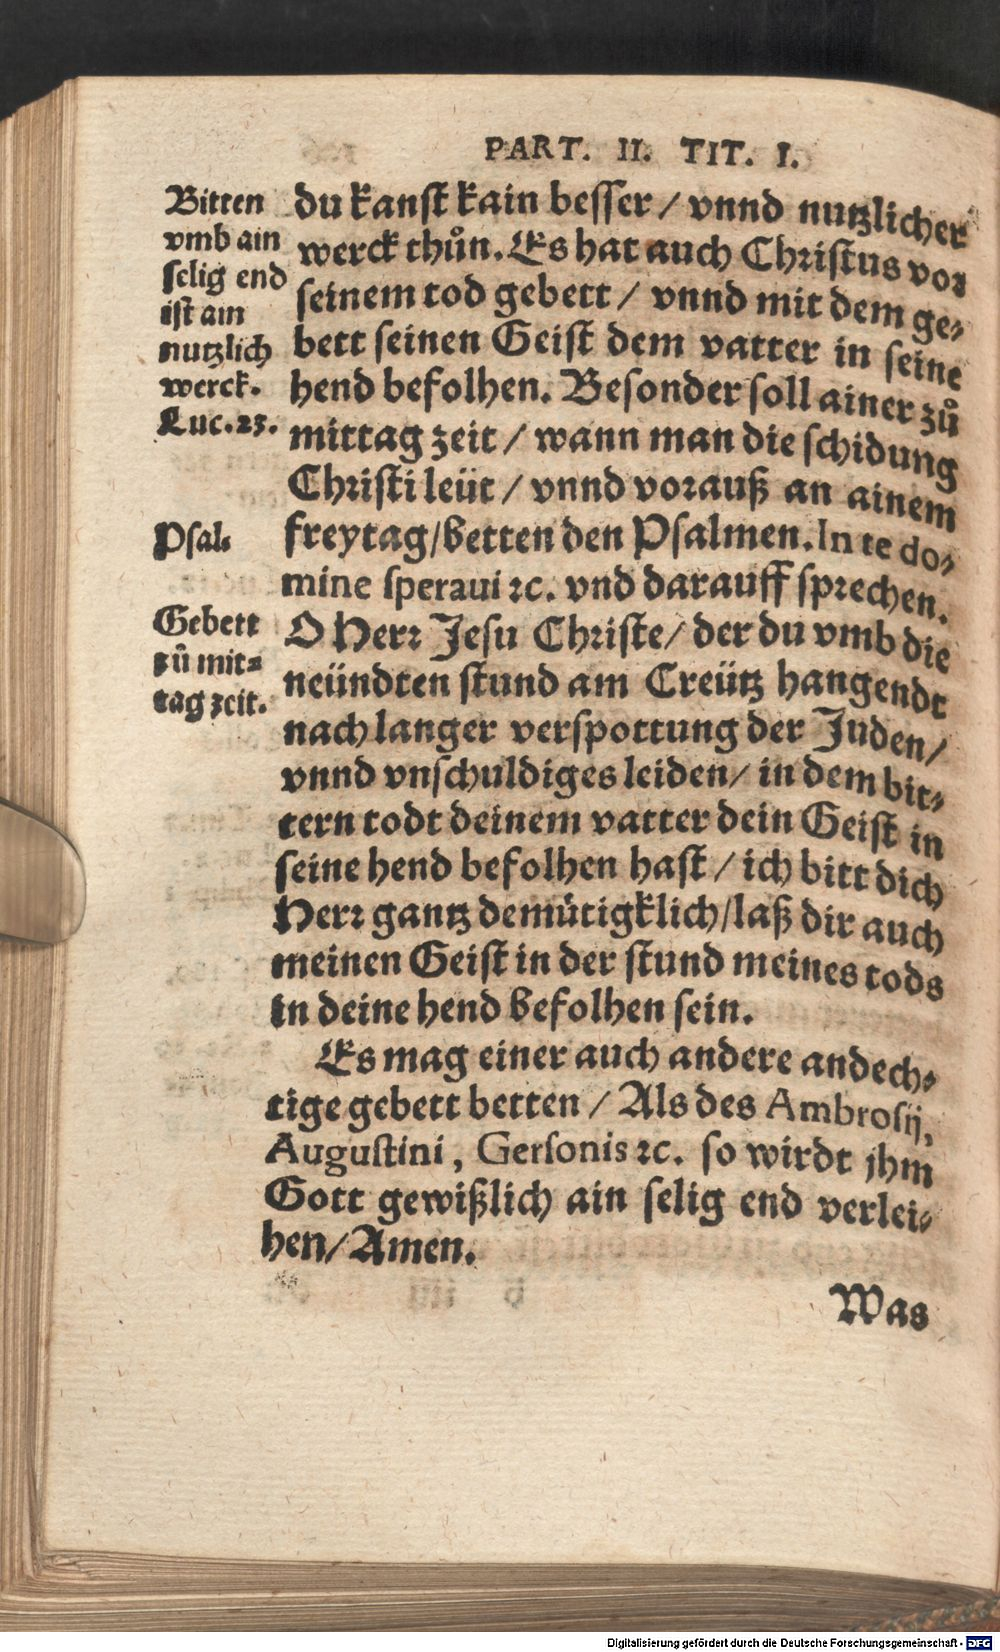 PART. II. TIT. I.
Bitten
vmb ain
selig end
ist am
nutzlich
werck.
Luc. 23.
Psal.
Gebett
zů mit-
tag zeit.
du kanst kain besser / vnnd nutzlicher
werck thůn. Es hat auch Christus vor
seinem tod gebett / vnnd mit dem ge-
bett seinen Geist dem vatter in seine
hend befolhen. Besonder soll ainer zů
mittag zeit / wann man die schidung
Christi leüt / vnnd vorauß an ainem
freytag / betten den Psalmen. In te do-
mine speraui ꝛc. vnd darauff sprechen.
O Herr Jesu Christe / der du vmb die
neündten stund am Creütz hangendt
nach langer verspottung der Juden /
vnnd vnschuldiges leiden / in dem bit-
tern todt deinem vatter dein Geist in
seine hend befolhen hast / ich bitt dich
Herr gantz demütigklich / laß dir auch
meinen Geist in der stund meines tods
in deine hend befolhen sein.
Es mag einer auch andere andech-
tige gebett betten / Als des Ambrosij,
Augustini, Gersonis ꝛc. so wirdt jhm
Gott gewißlich ain selig end verlei-
hen / Amen.
Was
Digitalisierung gefördert durch die Deutsche Forschungsgemeinschaft - DFG